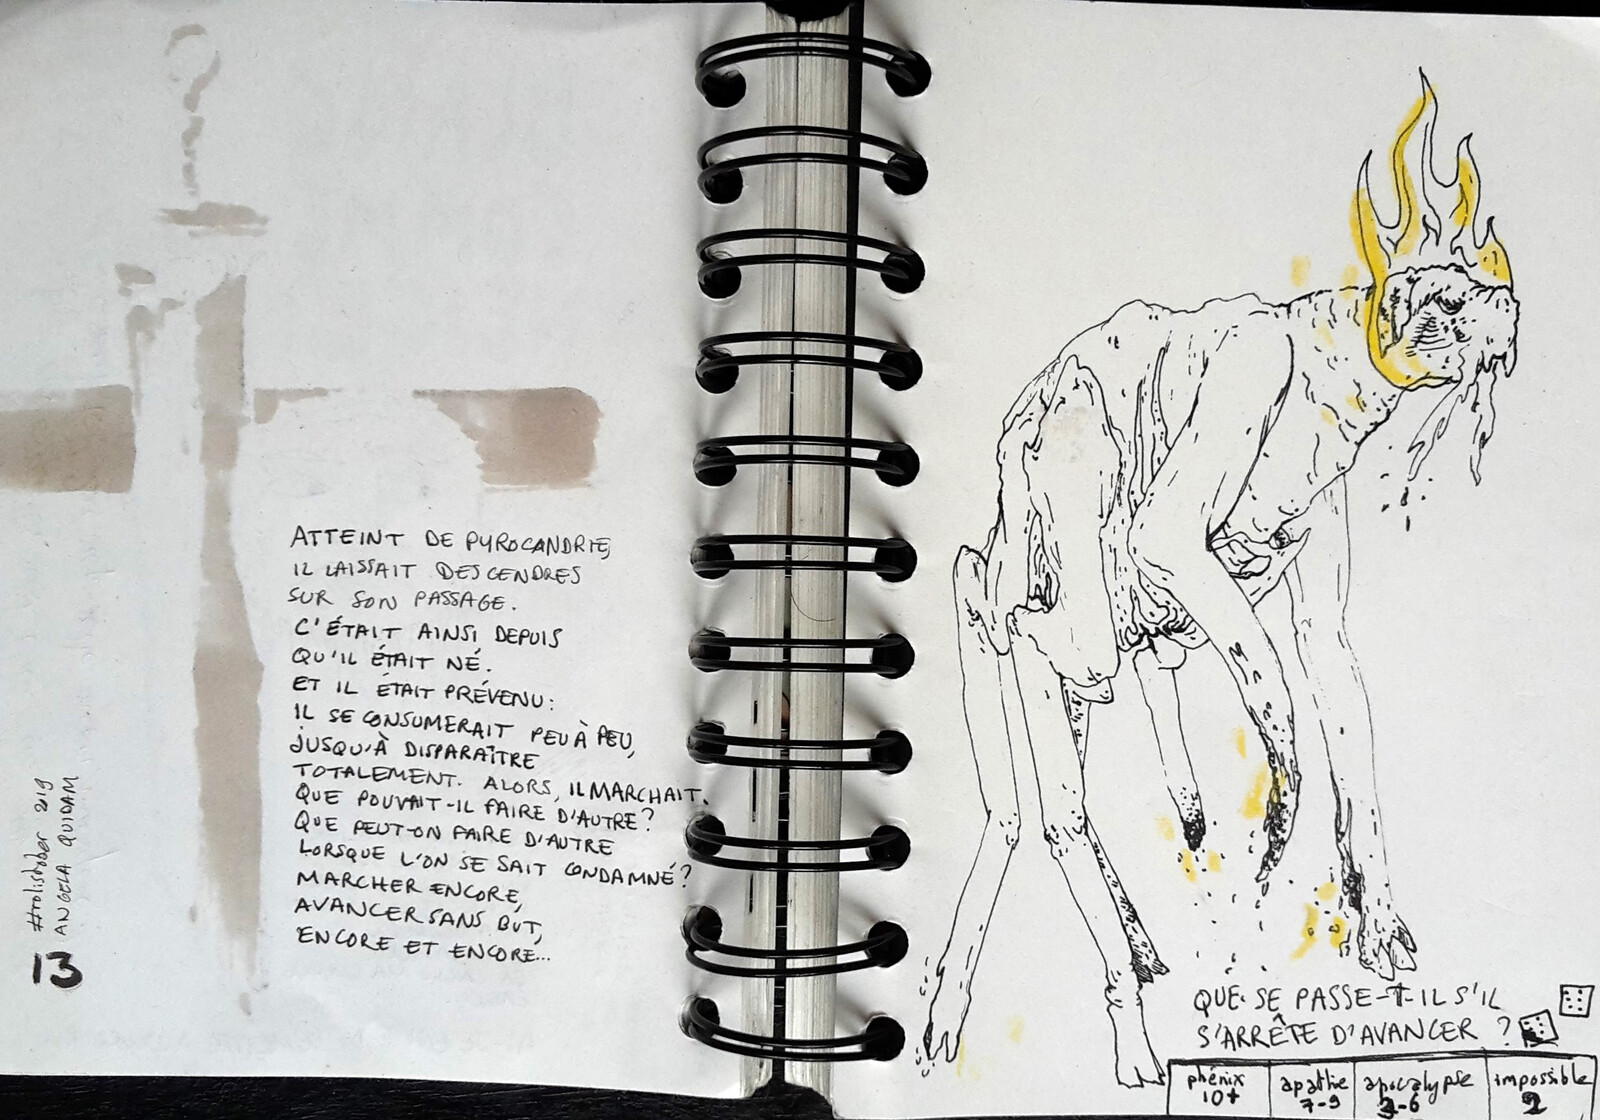 ATTEINT DE PYROCANDRIE,
IL LAISSAIT DES CENDRES
SUR SON PASSAGE.
C'ÉTAIT AINSI DEPUIS
QU'IL ÉTAIT NÉ.
ET IL ÉTAIT PRÉVENU:
IL SE CONSUMERAIT PEU À PEU,
JUSQU'À DISPARAÎTRE
TOTALEMENT. ALORS, IL MARCHAIT.
QUE POUVAIT-IL FAIRE D'AUTRE?
QUE PEUT-ON FAIRE D'AUTRE
LORSQUE L'ON SE SAIT CONDAMNÉ?
MARCHER ENCORE,
AVANCER SANS BUT,
ENCORE ET ENCORE...
#rolistober 2019
ANGELA QUIDAM
13
QUE SE PASSE-T-IL S'IL
S'ARRÊTE D'AVANCER ?
phénix apathie apocalypse impossible
10+ 7-9 3-6 2